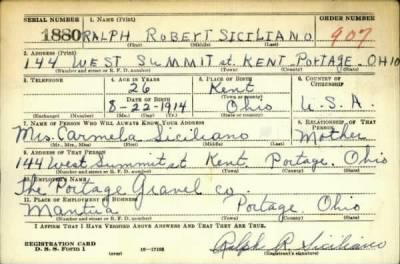 SERIAL NUMBER 1. NAME (Print) ORDER NUMBER
1880 RALPH ROBERT SICILIANO 907
(First) (Middle) (Last)
2. ADDRESS (Print)
144 WEST SUMMIT st. KENT PORTAGE. OHIO
(Number and street or R. F. D. number) (Town) (County) (State)
3. TELEPHONE 4. AGE IN YEARS 5. PLACE OF BIRTH 6. COUNTRY OF CITIZENSHIP
26 Kent
DATE OF BIRTH (Town or county)
8-22-1914 Ohio U.S.A.
(Mo.) (Day) (Yr.) (State or country)
7. NAME OF PERSON WHO WILL ALWAYS KNOW YOUR ADDRESS 8. RELATIONSHIP OF THAT PERSON
Mrs. Carmela Siciliano Mother
(Mr., Mrs., Miss) (First) (Middle) (Last)
9. ADDRESS OF THAT PERSON
144 West Summit st Kent Portage. Ohio
(Number and street or R. F. D. number) (Town) (County) (State)
10. EMPLOYER'S NAME
The Portage Gravel co.
11. PLACE OF EMPLOYMENT OR BUSINESS
Mantua Portage. Ohio
(Number and street or R. F. D. number) (Town) (County) (State)
I AFFIRM THAT I HAVE VERIFIED ABOVE ANSWERS AND THAT THEY ARE TRUE.
REGISTRATION CARD
D. S. S. Form 1 (over) 16-17105 Ralph R. Siciliano
(Registrant's signature)